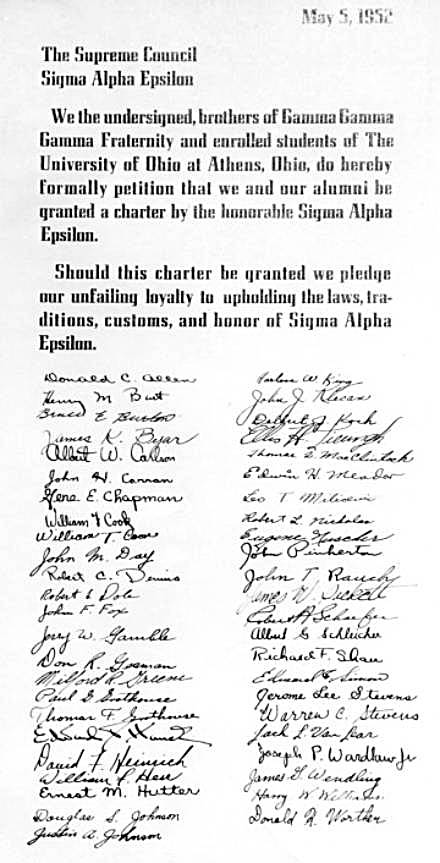 May 5, 1952
The Supreme Council
Sigma Alpha Epsilon
We the undersigned, brothers of Gamma Gamma
Gamma Fraternity and enrolled students of The
University of Ohio at Athens, Ohio, do hereby
formally petition that we and our alumni be
granted a charter by the honorable Sigma Alpha
Epsilon.
Should this charter be granted we pledge
our unfailing loyalty to upholding the laws, tra-
ditions, customs, and honor of Sigma Alpha
Epsilon.
Donald C. Allen
Henry M Burt
Bruce E. Burton
James K. Byar
Albert W. Carlson
John H. Conran
Gene E. Chapman
William F Cook
William T. Coon
John M. Day
Robert C. Dennis
Robert E Dole
John F. Fox
Jory W. Gamble
Don R. Gosman
Milford R. Greene
Paul G Grothouse
Thomas F. Grothouse
David F. Heinrich
William P. Herr
Ernest M. Hutter
Douglas S. Johnson
Justin A. Johnson
W. King
John J.
Delbert J Koch
Ellis H.
Thomas E. MacClintock
Edwin H. Meador
Leo T
Robert L. Nicholas
Eugene
John Pinkerton
John T. Rauch
James W.
Robert A Schaefer
Albert G Schleicher
Richard F. Shaw
Edmund F. Simon
Jerome Lee Stevens
Warren C. Stevens
Jack L. Van Lear
Joseph P. Wardlaw Jr
James G. Wendling
Harry W.
Donald R. Worthen